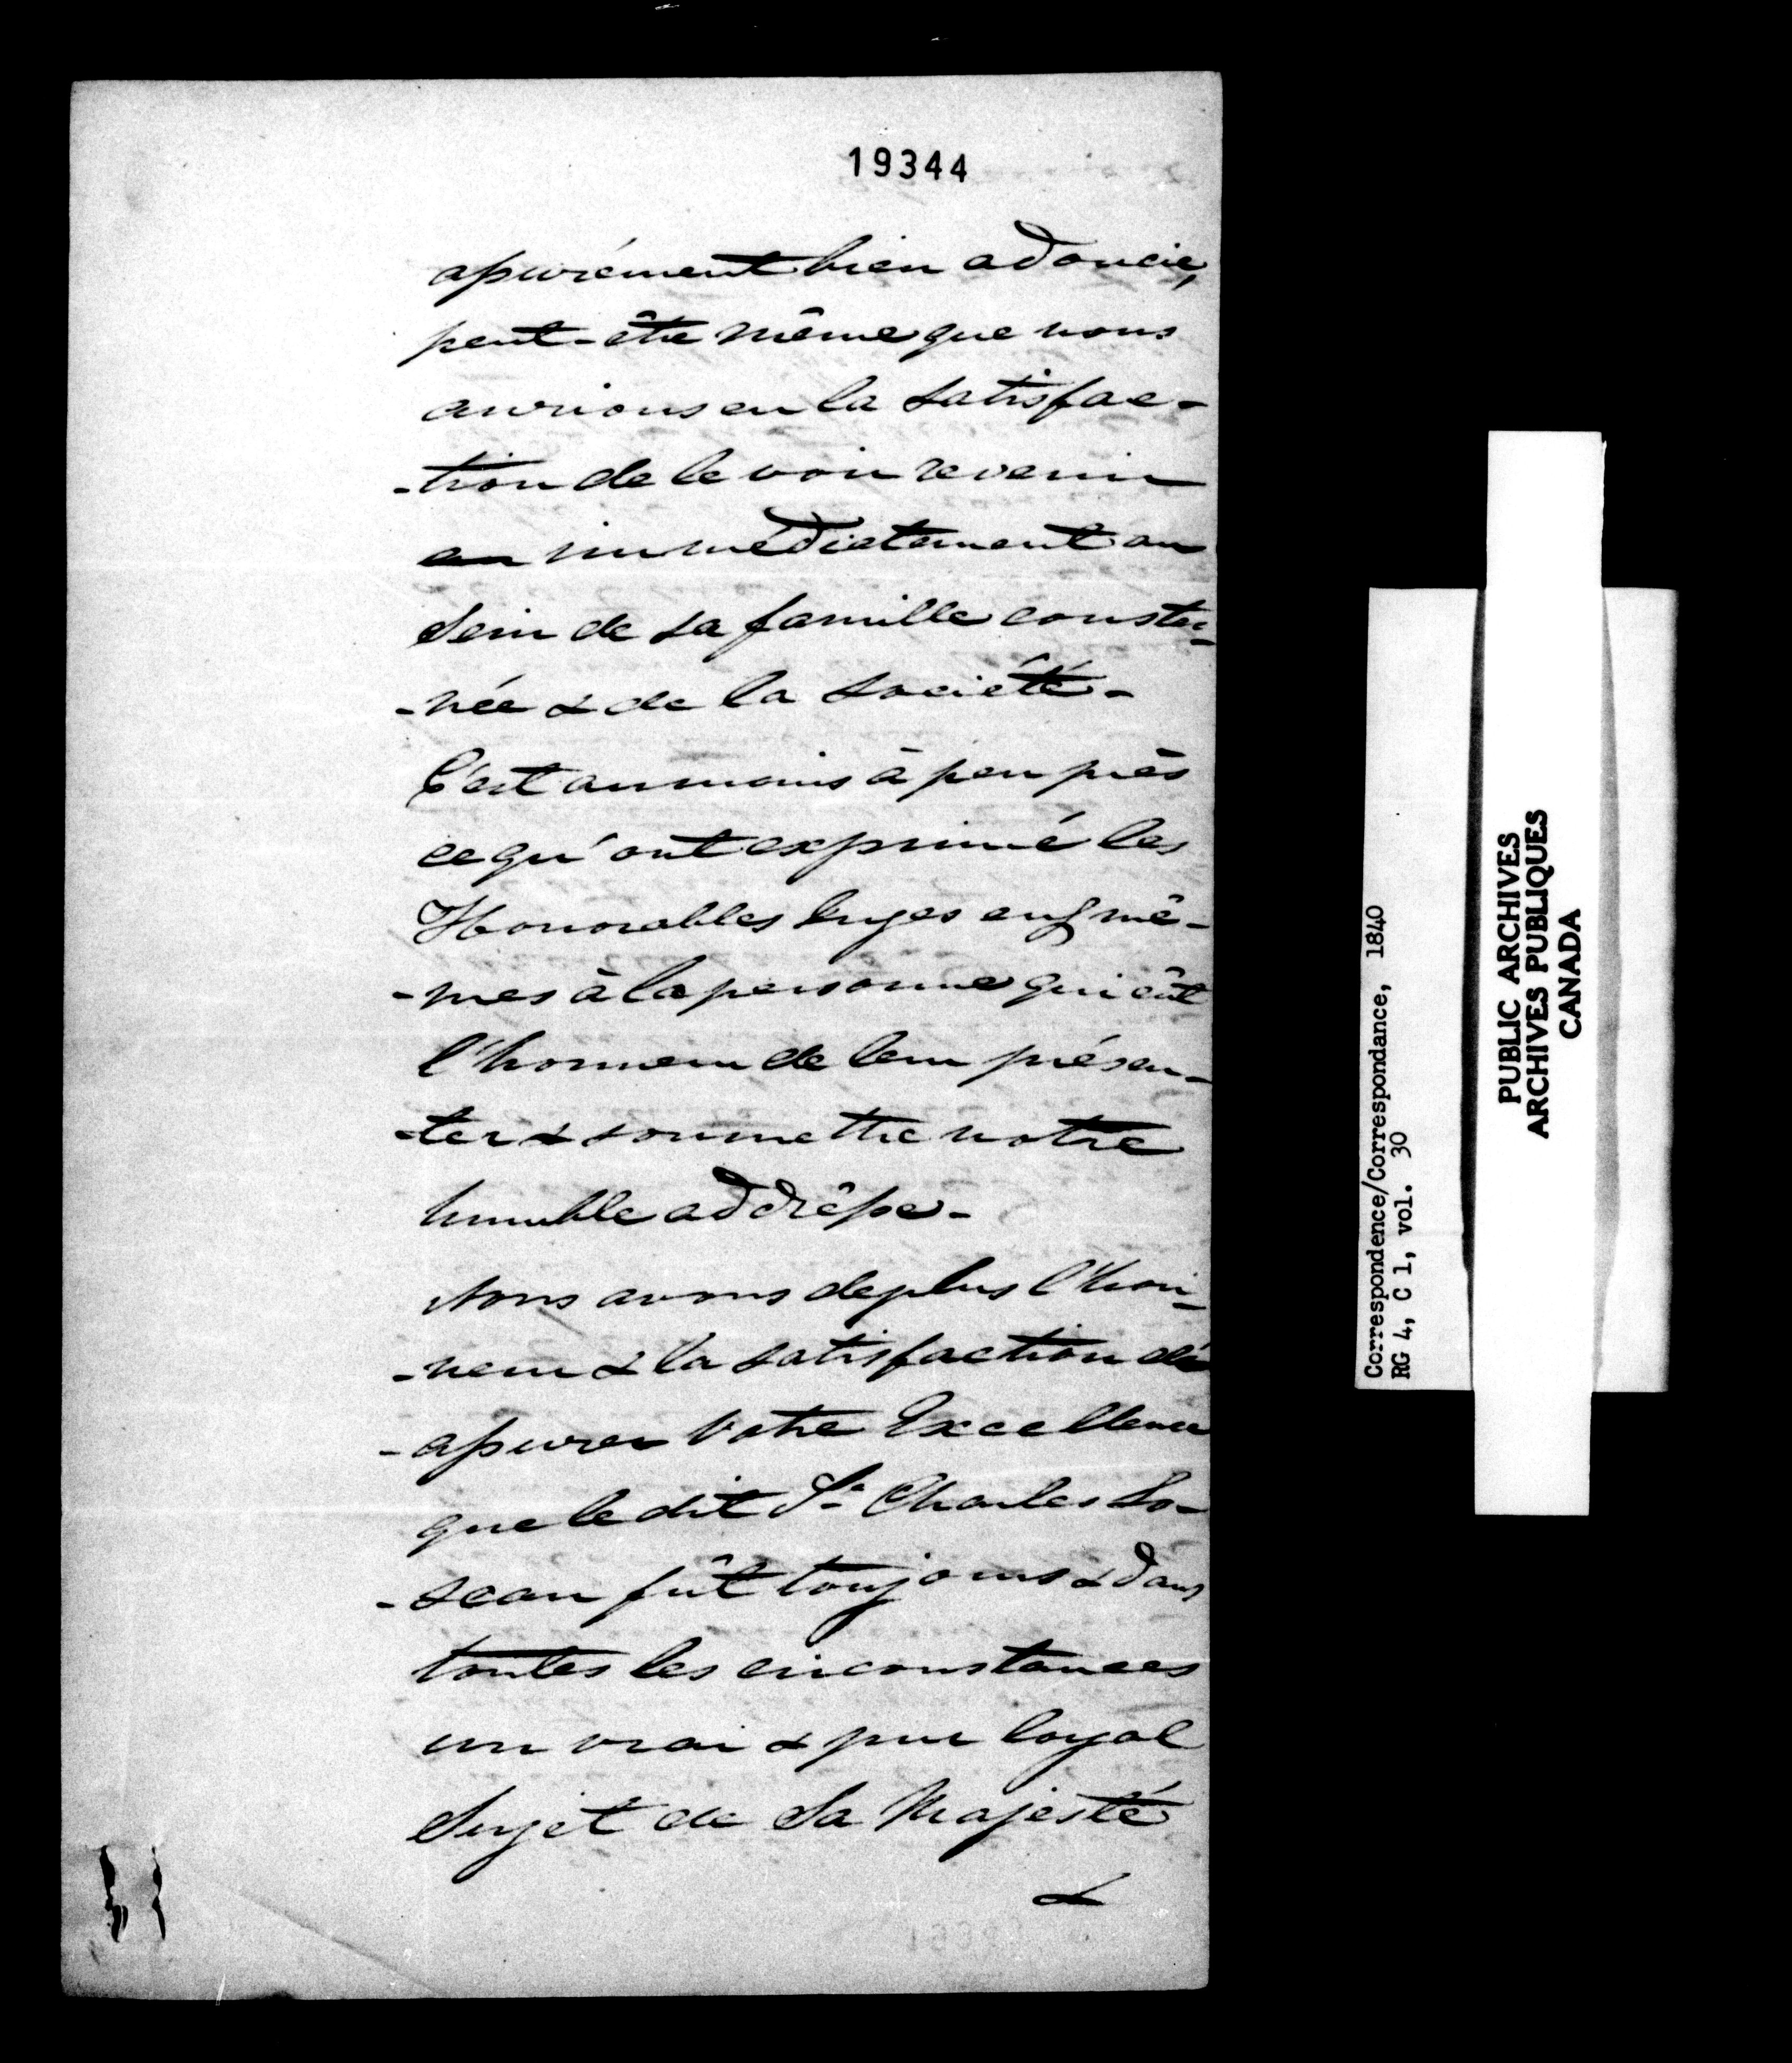 19344
assurément bien adoucie,
peut-être même que nous
aurions eu la satisfac-
-tion de le voir revenir
en immédiatement au
sein de sa famille conster-
-née & de la société -
C'est au moins à peu près
ce qu'ont exprimé les
Honorables Juges eux mê-
-mes à la personne qui eût
l'honneur de leur présen-
-ter & soumettre notre
humble addrêsse -
Nous avons de plus l'hon-
-neur & la satisfaction de
-assurer Votre Excellence
que le dit Sr. Charles Lo-
-seau fût toujours & dans
toutes les circonstances
un vrai & pur loyal
Sujet de Sa Majesté
&
Correspondence/Correspondance, 1840
RG 4, C 1, vol. 30
PUBLIC ARCHIVES
ARCHIVES PUBLIQUES
CANADA